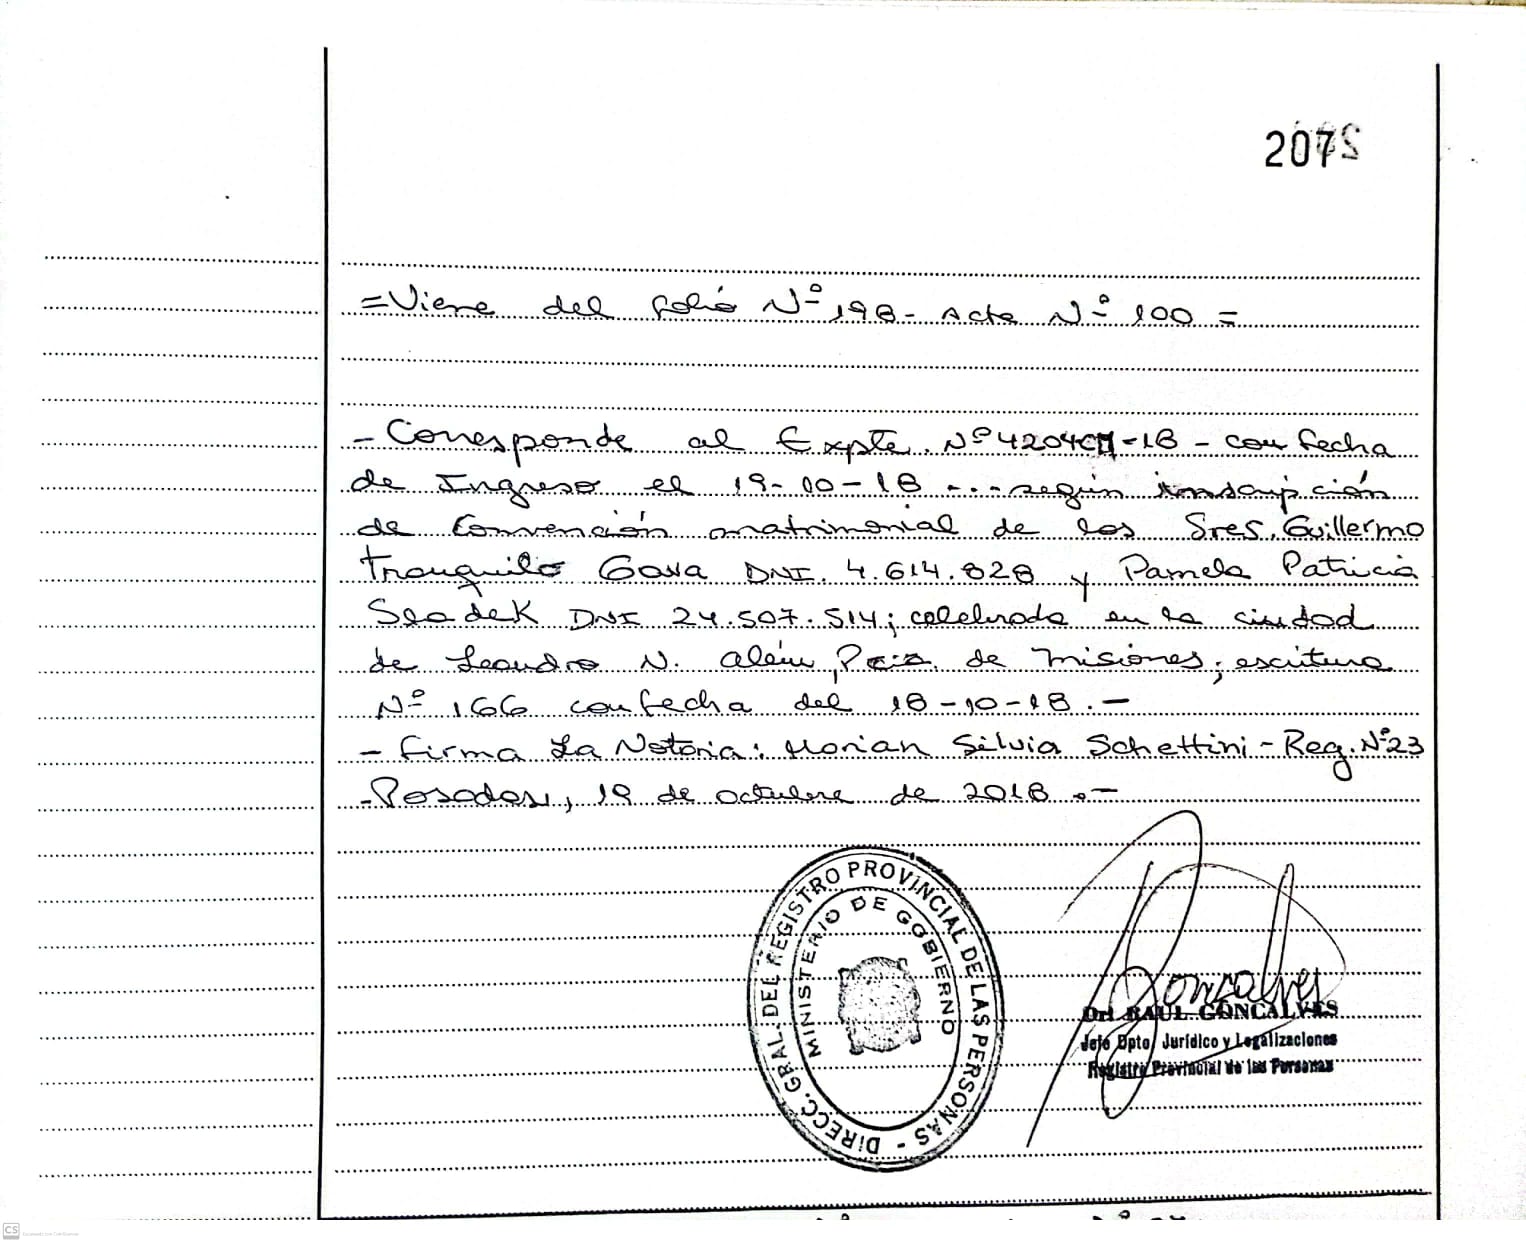 207
=Viene del folio Nº 198- Acta Nº 100 =
- Corresponde al Expte. Nº 4204 -18 - con fecha
de Ingreso el 19-10-18 --- según inscripción
de Convención matrimonial de los Sres. Guillermo
Tranquilo Gava DNI. 4.614.828 y Pamela Patricia
Sladek DNI 24.507.514; celebrada en la ciudad
de Leandro N. Alem, Pcia. de Misiones; escritura
Nº 166 con fecha del 18-10-18.-
- Firma La Notaria: Morian Silvia Schettini - Reg. Nº23
-Posadas, 19 de octubre de 2018.-
DIRECC. GRAL. DEL REGISTRO PROVINCIAL DE LAS PERSONAS -
MINISTERIO DE GOBIERNO
Goncalves
Dr. RAUL GONCALVES
Jefe Dpto. Jurídico y Legalizaciones
Registro Provincial de las Personas
CS